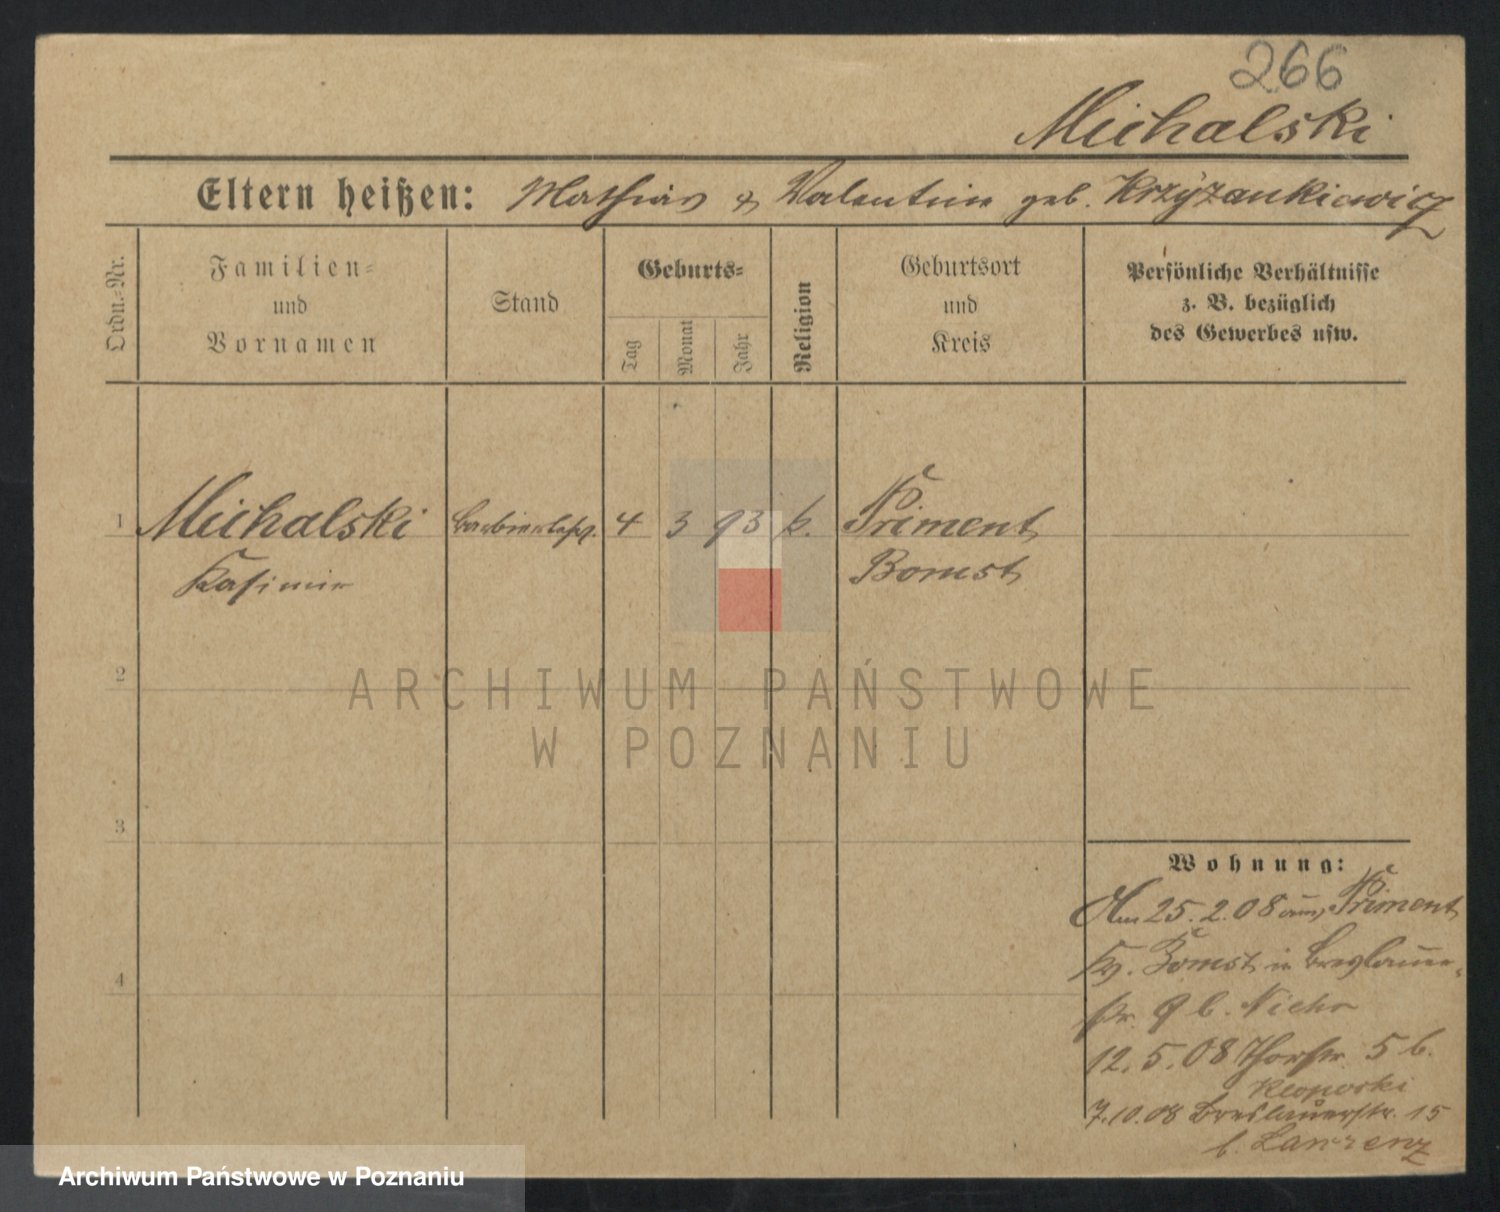 266
Michalski
Eltern heißen: Mathias & Valentine geb. Krzyzankiewicz
Ordn.-Nr.
Familien-
und
Vornamen
Stand
Geburts-
Tag
Monat
Jahr
Religion
Geburtsort
und
Kreis
Persönliche Verhältnisse
z. B. bezüglich
des Gewerbes usw.
1 Michalski Barbierlehrl. 4 3 93 k. Priment
Kasimir Bomst
2
ARCHIWUM PAŃSTWOWE
W POZNANIU
3
4
Wohnung:
Am 25.2.08 aus Priment
Kr. Bomst in Breslauer-
str. 9 b.
12.5.08 Thorstr. 5 b.
7.10.08 Breslauerstr. 15
b. Lawrenz
Archiwum Państwowe w Poznaniu